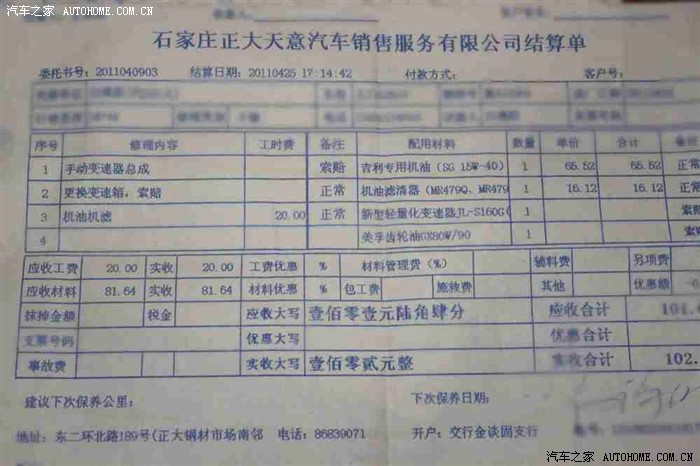 汽车之家 AUTOHOME.COM.CN
石家庄正大天意汽车销售服务有限公司结算单
委托书号：2011040903 结算日期：20110425 17:14:42 付款方式： 客户号：
序号 修理内容 工时费 备注 配用材料 数量 单价 合计 备注
1 手动变速器总成 索赔 吉利专用机油（SG 15W-40） 1 65.52 65.52 正常
2 更换变速箱，索赔 正常 机油滤清器（MR479Q、MR479 1 16.12 16.12 正常
3 机油机滤 20.00 正常 新型轻量化变速器JL-S160G( 1 索赔
4 美孚齿轮油GX80W/90 1 索赔
应收工费 20.00 实收 20.00 工费优惠 % 材料管理费（%） 辅料费 另项费
应收材料 81.64 实收 81.64 材料优惠 % 包工费 施救费 其他 优惠额
抹掉金额 税金 应收大写 壹佰零壹元陆角肆分 应收合计 101.
支票号码 优惠大写 优惠合计
事故费 实收大写 壹佰零贰元整 实收合计 102.
建议下次保养公里： 下次保养日期：
地址：东二环北路189号(正大钢材市场南邻 电话：86839071 开户：交行金谈固支行
汽车之家 AUTOHOME.COM.CN